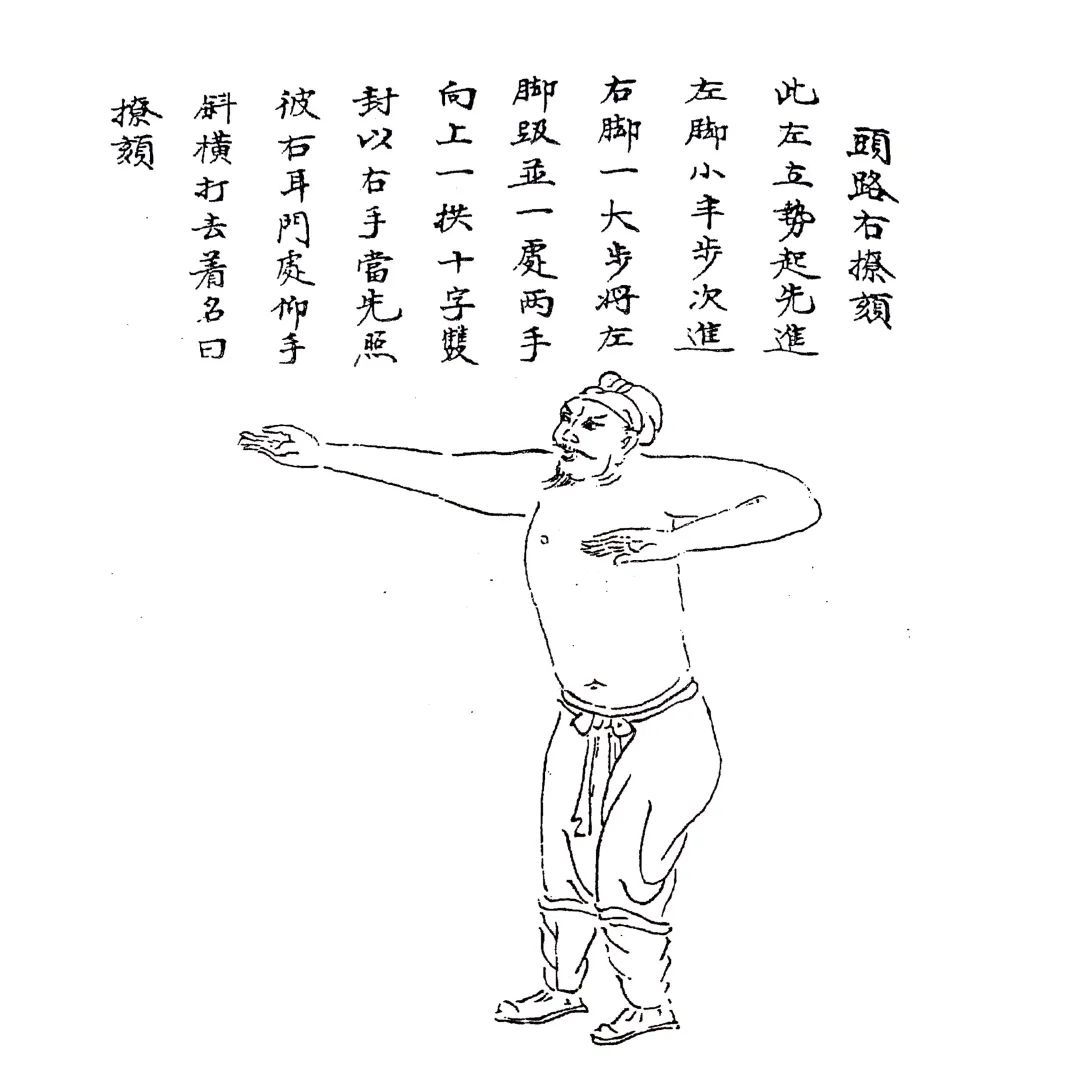 頭路右撩頦
此左立勢起先進
左脚小半步次進
右脚一大步將左
脚趿並一處两手
向上一拱十字雙
封以右手當先照
彼右耳門處仰手
斜橫打去着名曰
撩頦